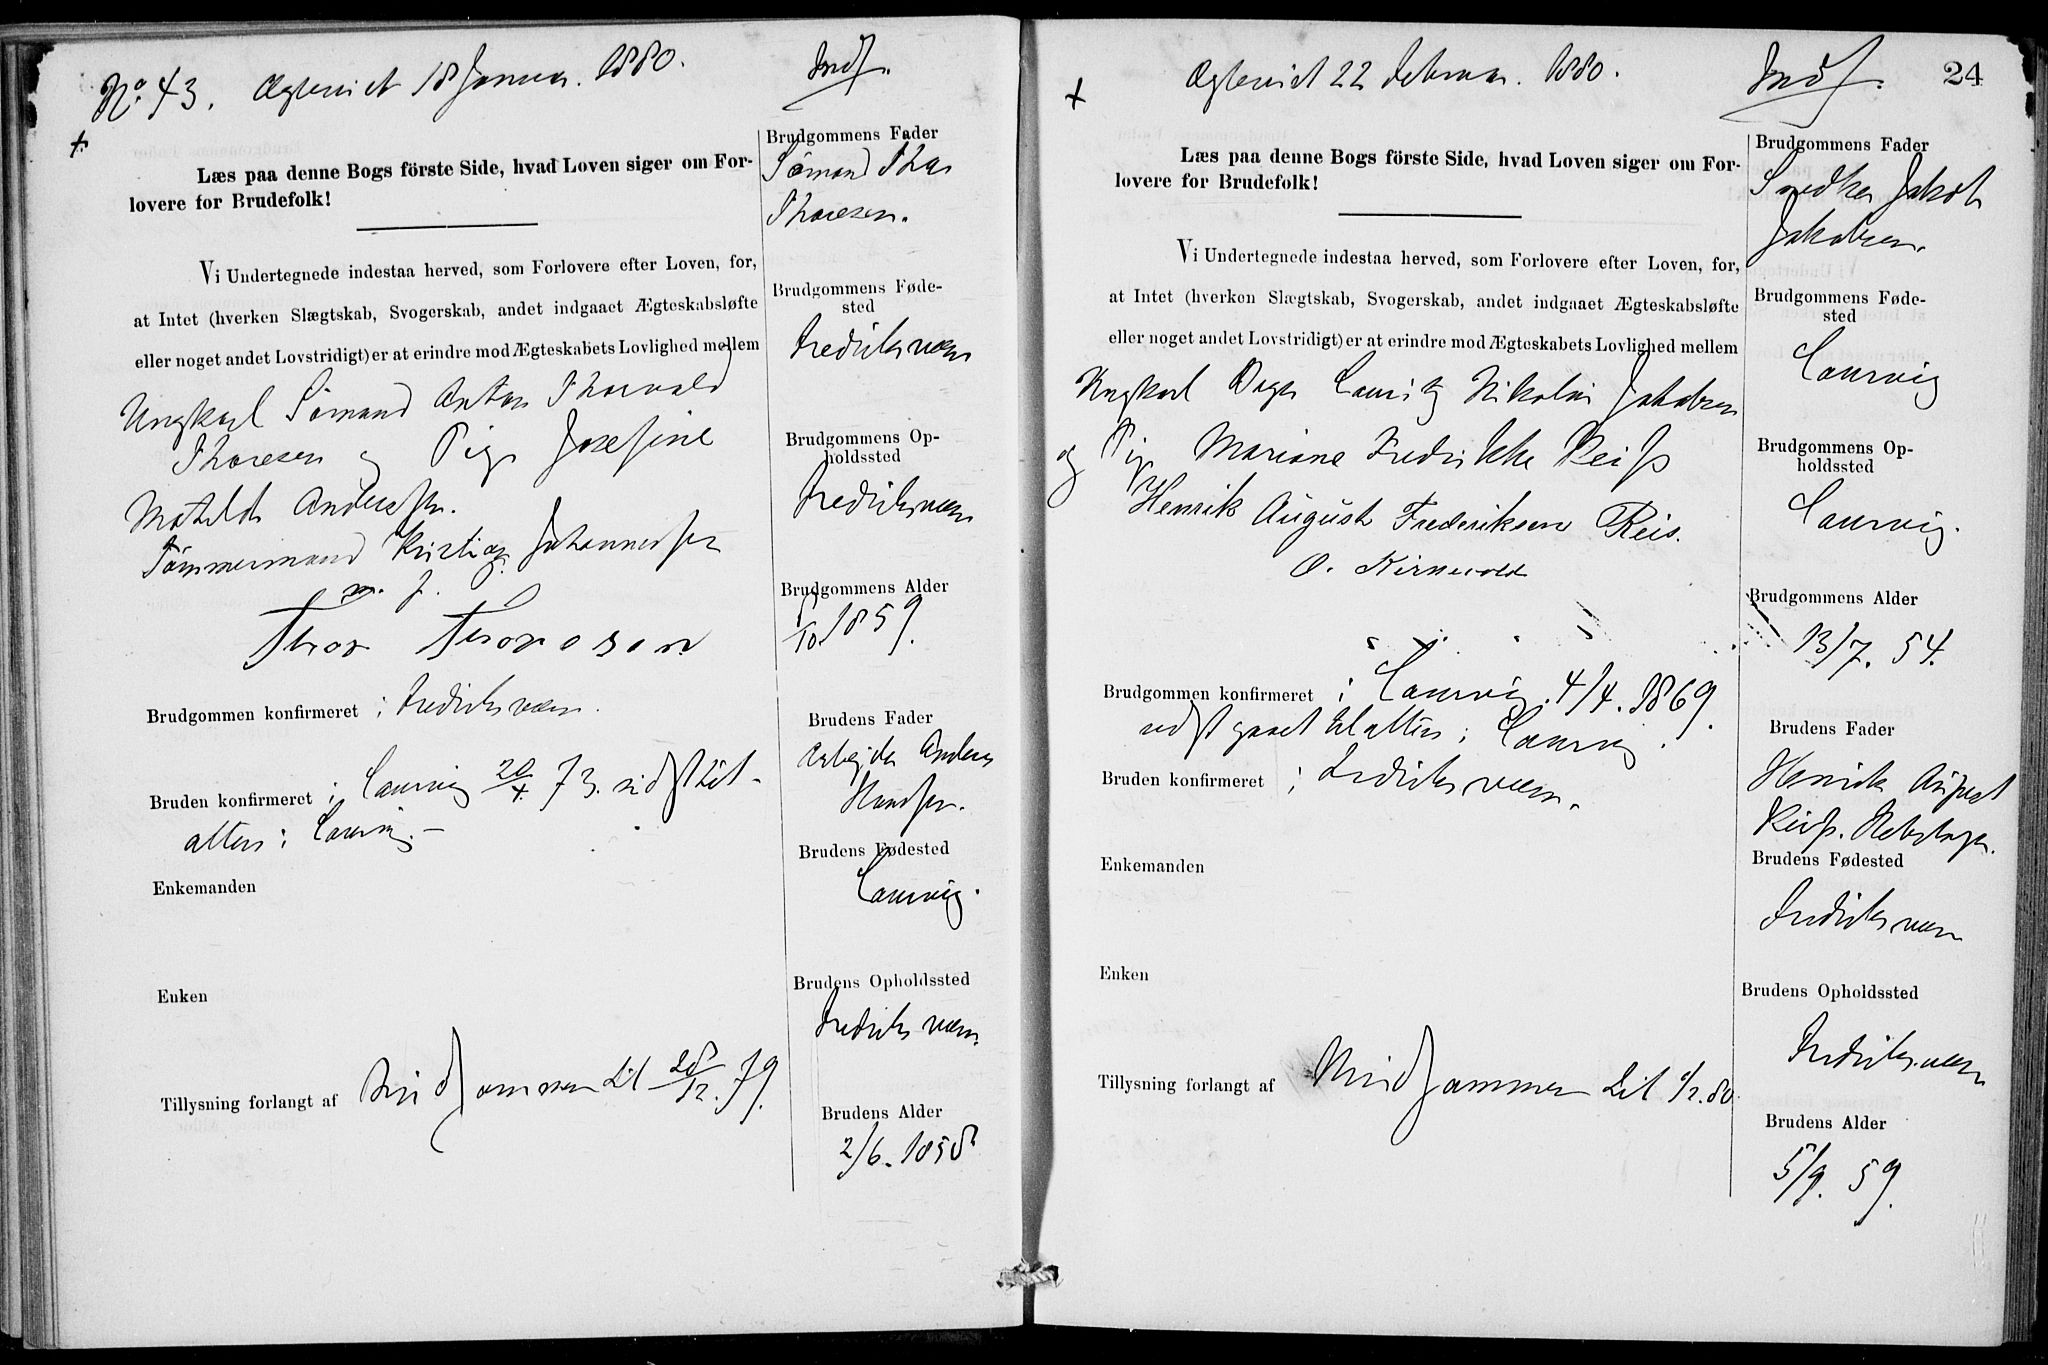 No. 43. Ægteviet 18 Januar. 1880. Indf.
+
Læs paa denne Bogs förste Side, hvad Loven siger om For-
lovere for Brudefolk!
Vi Undertegnede indestaa herved, som Forlovere efter Loven, for,
at Intet (hverken Slægtskab, Svogerskab, andet indgaaet Ægteskabsløfte
eller noget andet Lovstridigt) er at erindre mod Ægteskabets Lovlighed mellem
Ungkarl Sømand Anton Thorvald
Thoresen og Pige Josefine
Matilde Anderssen.
Tömmermand Kristian Johannessen
m. f.
Thor Thoresen
Brudgommen konfirmeret i Fredriksværn.
Bruden konfirmeret i Laurvig 20/4. 73. sidst til-
alters i Laurvig.
Enkemanden
Enken
Tillysning forlangt af Brudgommen til 28/12. 79.
Brudgommens Fader
Sømand Thor
Thoresen.
Brudgommens Føde-
sted
Fredriksværn
Brudgommens Op-
holdssted
Fredriksværn
Brudgommens Alder
/10. 1859.
Brudens Fader
Arbejder Anders
Hansen.
Brudens Fødested
Laurvig.
Brudens Opholdssted
Fredriksværn.
Brudens Alder
2/6. 1858
Ægteviet 22 Februar. 1880. Indf. 24
+
Læs paa denne Bogs förste Side, hvad Loven siger om For-
lovere for Brudefolk!
Vi Undertegnede indestaa herved, som Forlovere efter Loven, for,
at Intet (hverken Slægtskab, Svogerskab, andet indgaaet Ægteskabsløfte
eller noget andet Lovstridigt) er at erindre mod Ægteskabets Lovlighed mellem
Ungkarl Lauritz Nikolai Jakobsen
og Pige Mariane Fredrikke Reiss
Henrik August Frederiksen Reis.
O. Kirnevold
Brudgommen konfirmeret i Laurvig. 4/4. 1869.
sidst gaaet til alters i Laurvig.
Bruden konfirmeret i Fredriksværn.
Enkemanden
Enken
Tillysning forlangt af Brudgommen til 1/2. 80.
Brudgommens Fader
Snedker Jakob
Jakobsen.
Brudgommens Føde-
sted
Laurvig
Brudgommens Op-
holdssted
Laurvig.
Brudgommens Alder
13/7. 54.
Brudens Fader
Henrik August
Reiss.
Brudens Fødested
Fredriksværn
Brudens Opholdssted
Fredriksværn
Brudens Alder
5/9. 59.